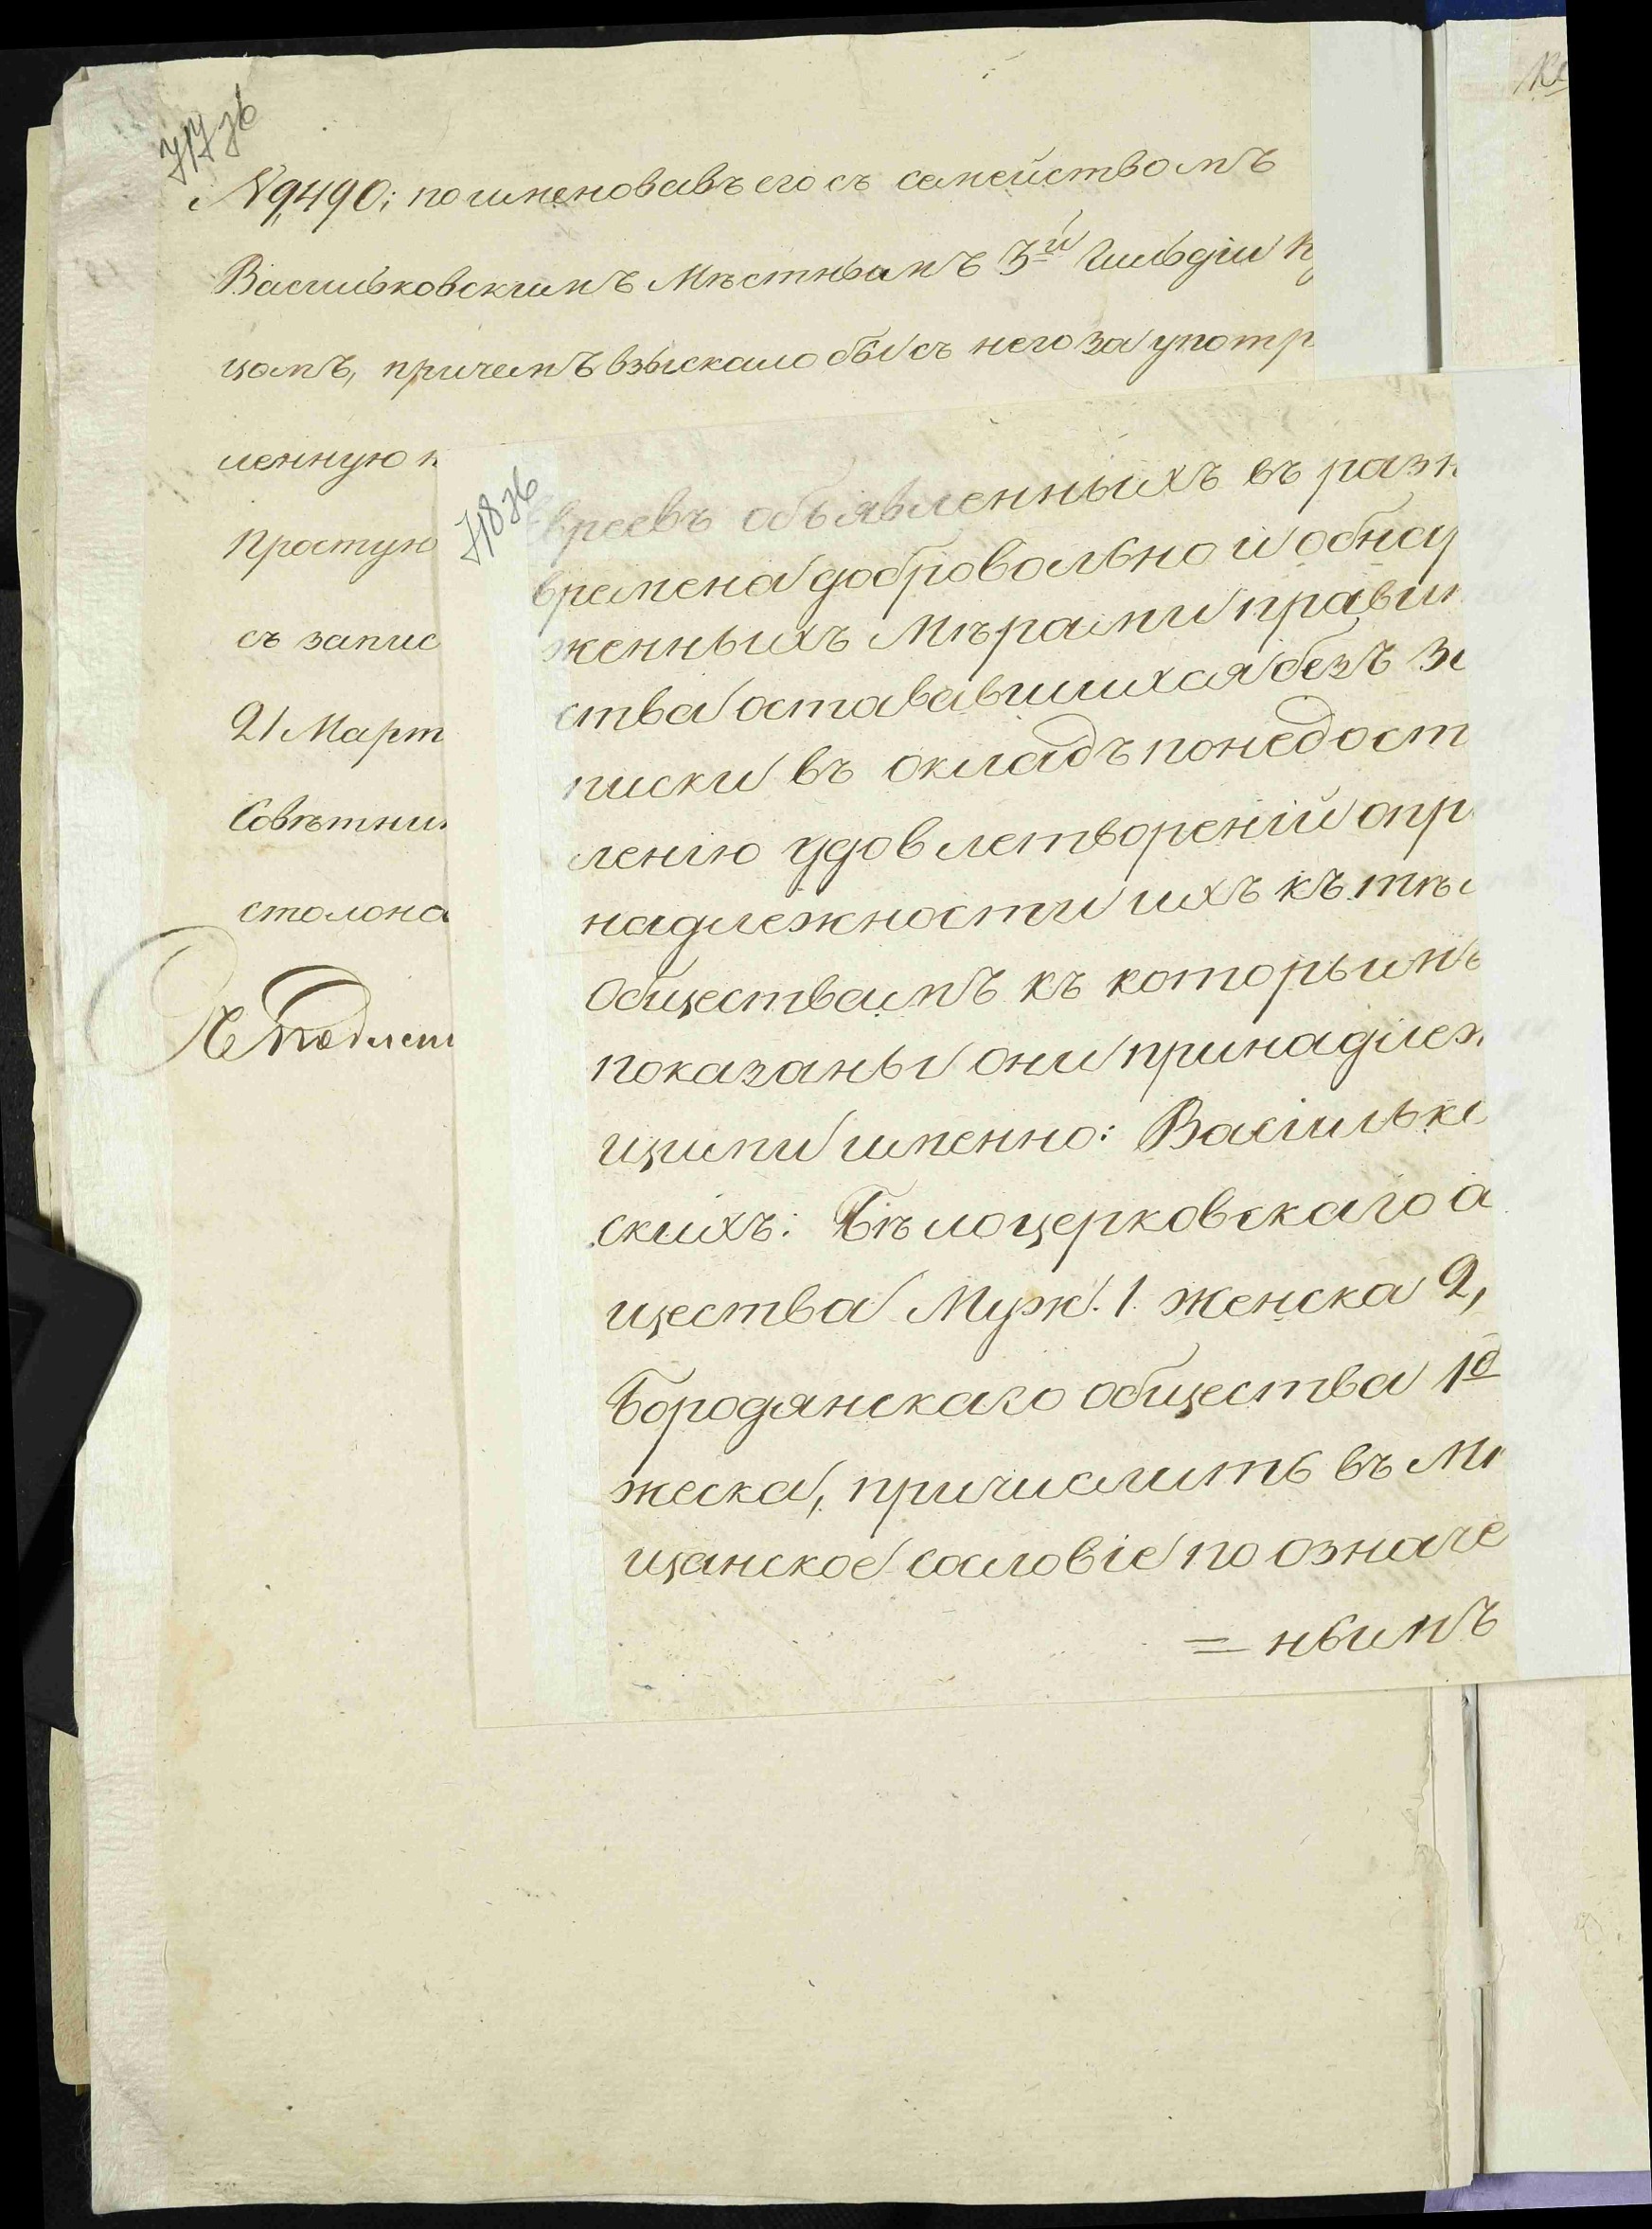 717 зв
№ 9,490; поименовавъ его съ семействомъ
Васильковскимъ Мѣстнымъ 3й Гильдіи К
цомъ, причемъ взыскало бы съ него за употр
ленную
Простую
съ запис
21 Март
Совѣтни
столона
718 зв
вреевъ объявленныхъ въ разн
времена добровольно и обнау
женныхъ Мѣрами прави
ства остававшихся безъ за
писки въ окладъ понедост
ленію удовлетвореній опр
надлежности ихъ къ тѣ
Обществамъ къ которымъ
показаны они принадлеж
щими именно: Василько
скихъ: Бѣлоцерковскаго о
щества Муж. 1. женска 2,
Бородянскаго общества 1о
жеска, причислить въ Мѣ
щанское сословіе по означе
= нымъ